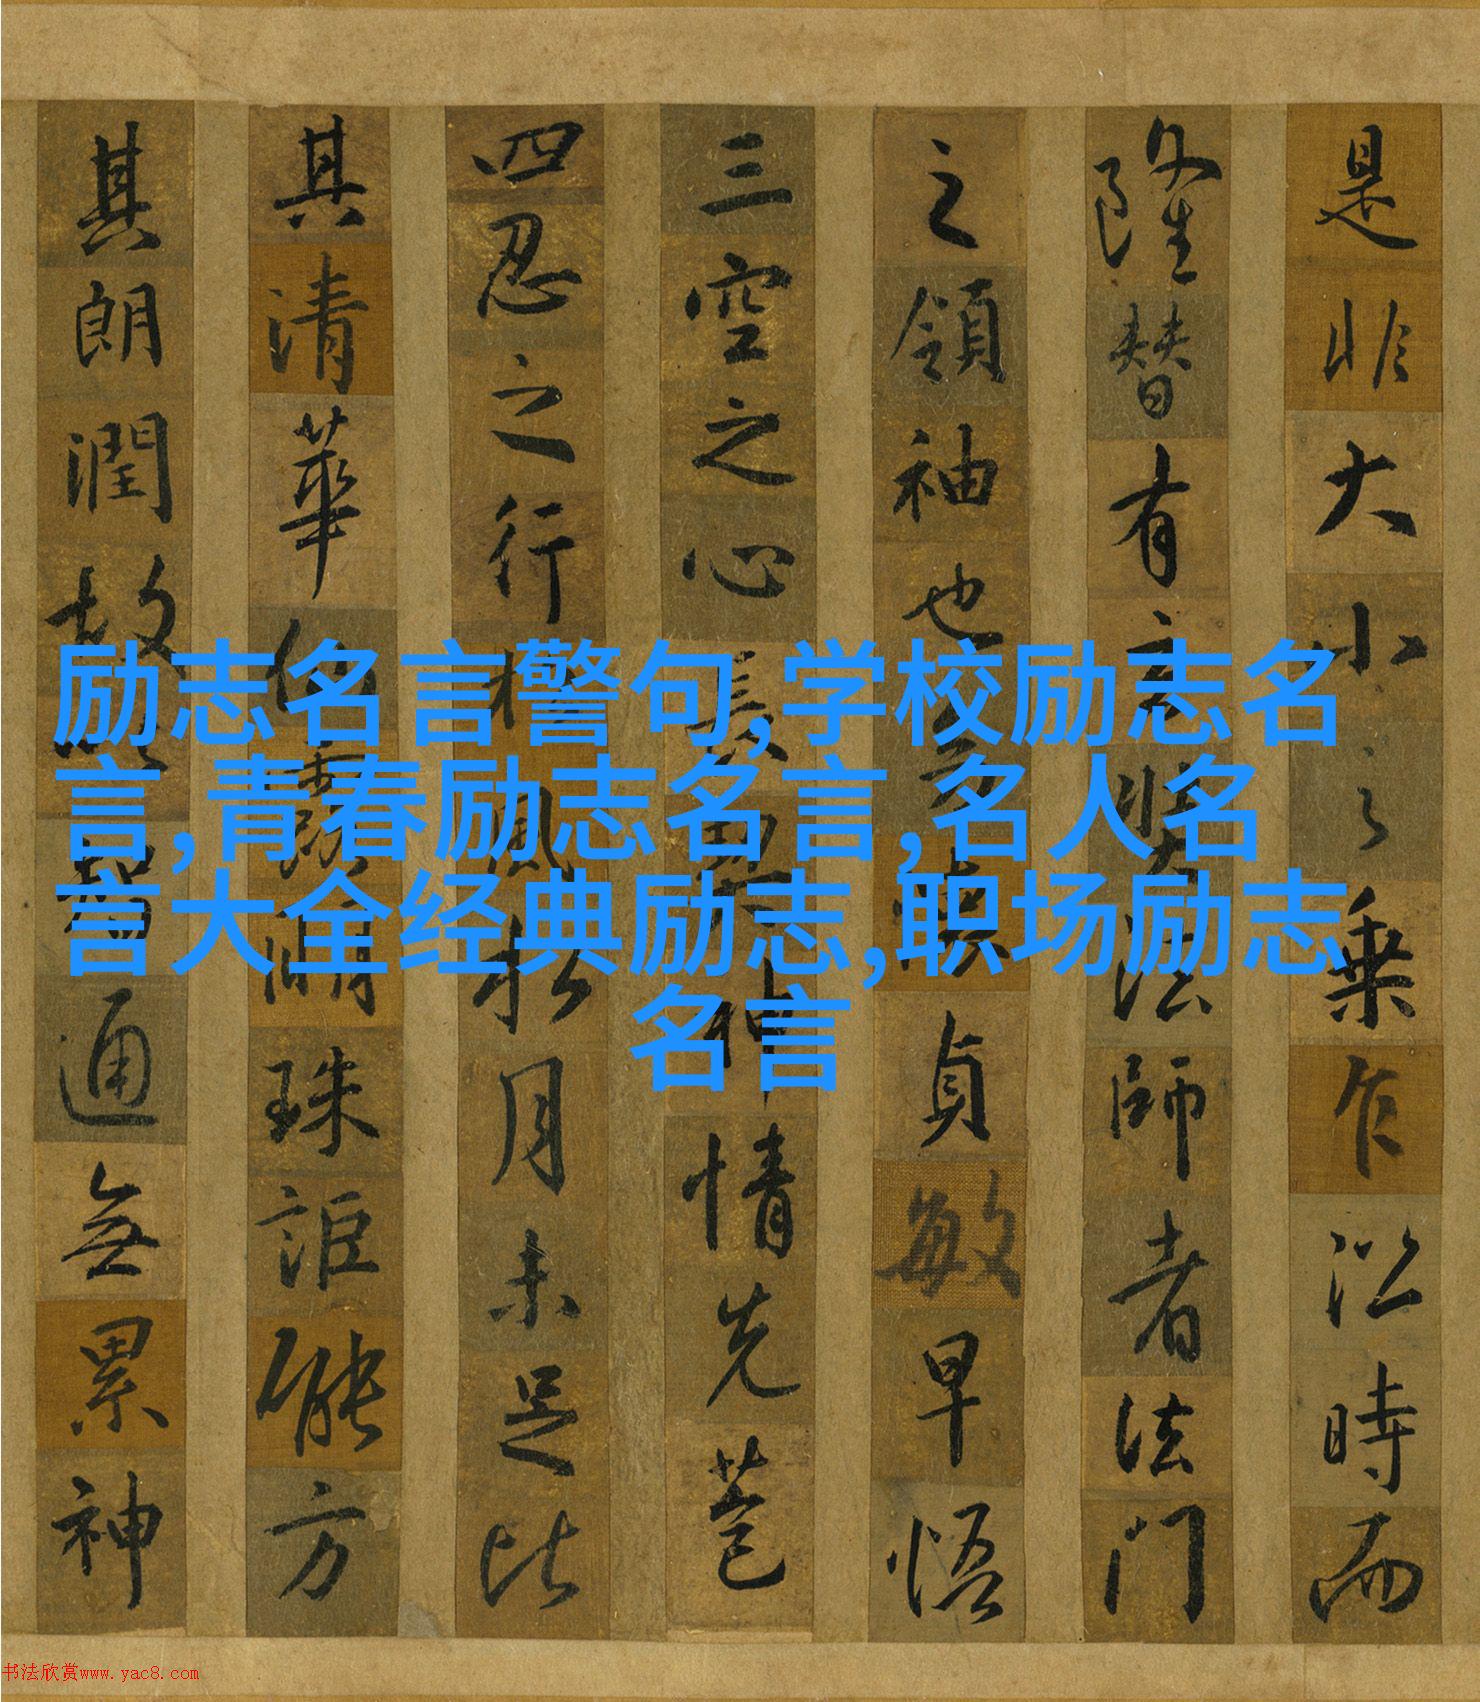 是非大小之乘乍沿時而
隆替有玄奘法師者法門
之領袖也幼懷貞敏早悟
三空之心長契神情先苞
四忍之行松風水月未足比
其清華仙露明珠詎能方
其朗潤故以智通無累神
励志名言警句,学校励志名
言,青春励志名言,名人名
言大全经典励志,职场励志
名言
书法欣赏www.yac8.com